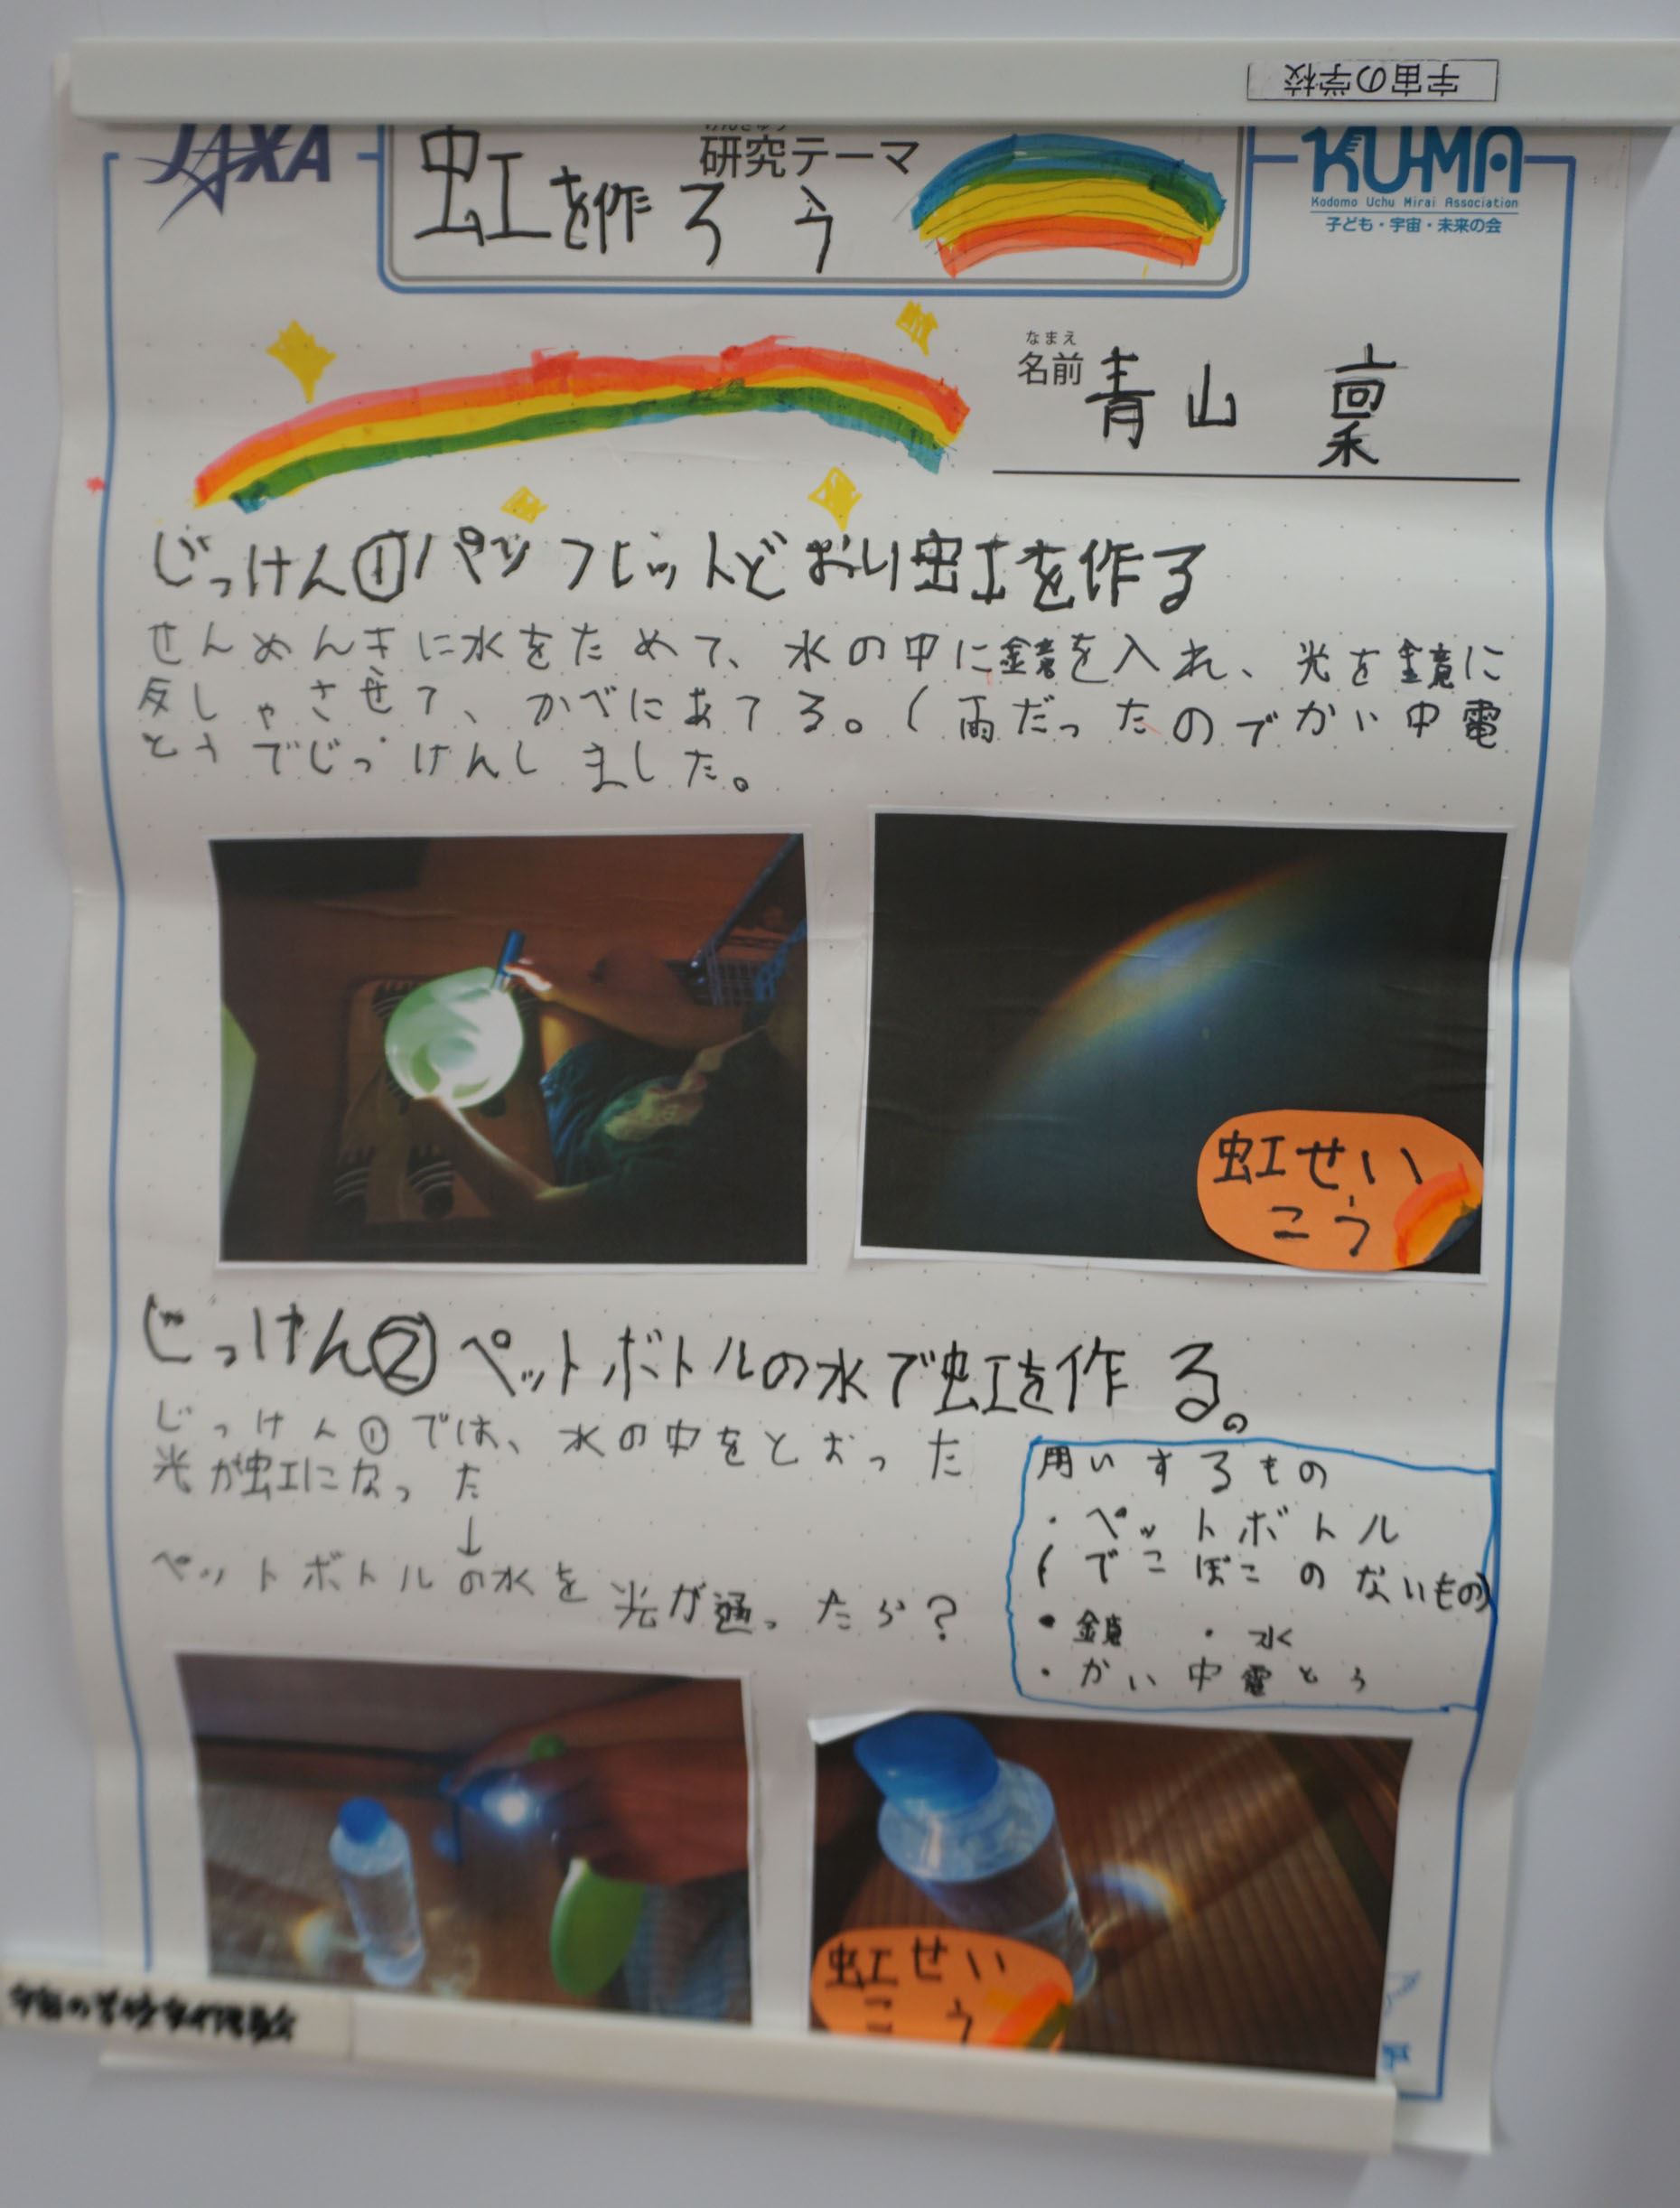 宇宙の学校
JAXA
けんきゅう
研究テーマ
虹を作ろう
KU-MA
Kodomo Uchu Mirai Association
子ども・宇宙・未来の会
なまえ
名前 青山 稟
じっけん①パンフレットどおり虹を作る
せんめんきに水をためて、水の中に鏡を入れ、光を鏡に
反しゃさせて、かべにあてる。(雨だったのでかい中電
とうでじっけんしました。
虹せい
こう
じっけん②ペットボトルの水で虹を作る。
じっけん①では、水の中をとおった
光が虹になった
↓
ペットボトルの水を光が通ったら?
用いするもの
・ペットボトル
(でこぼこのないもの)
・鏡 ・水
・かい中電とう
虹せい
こう